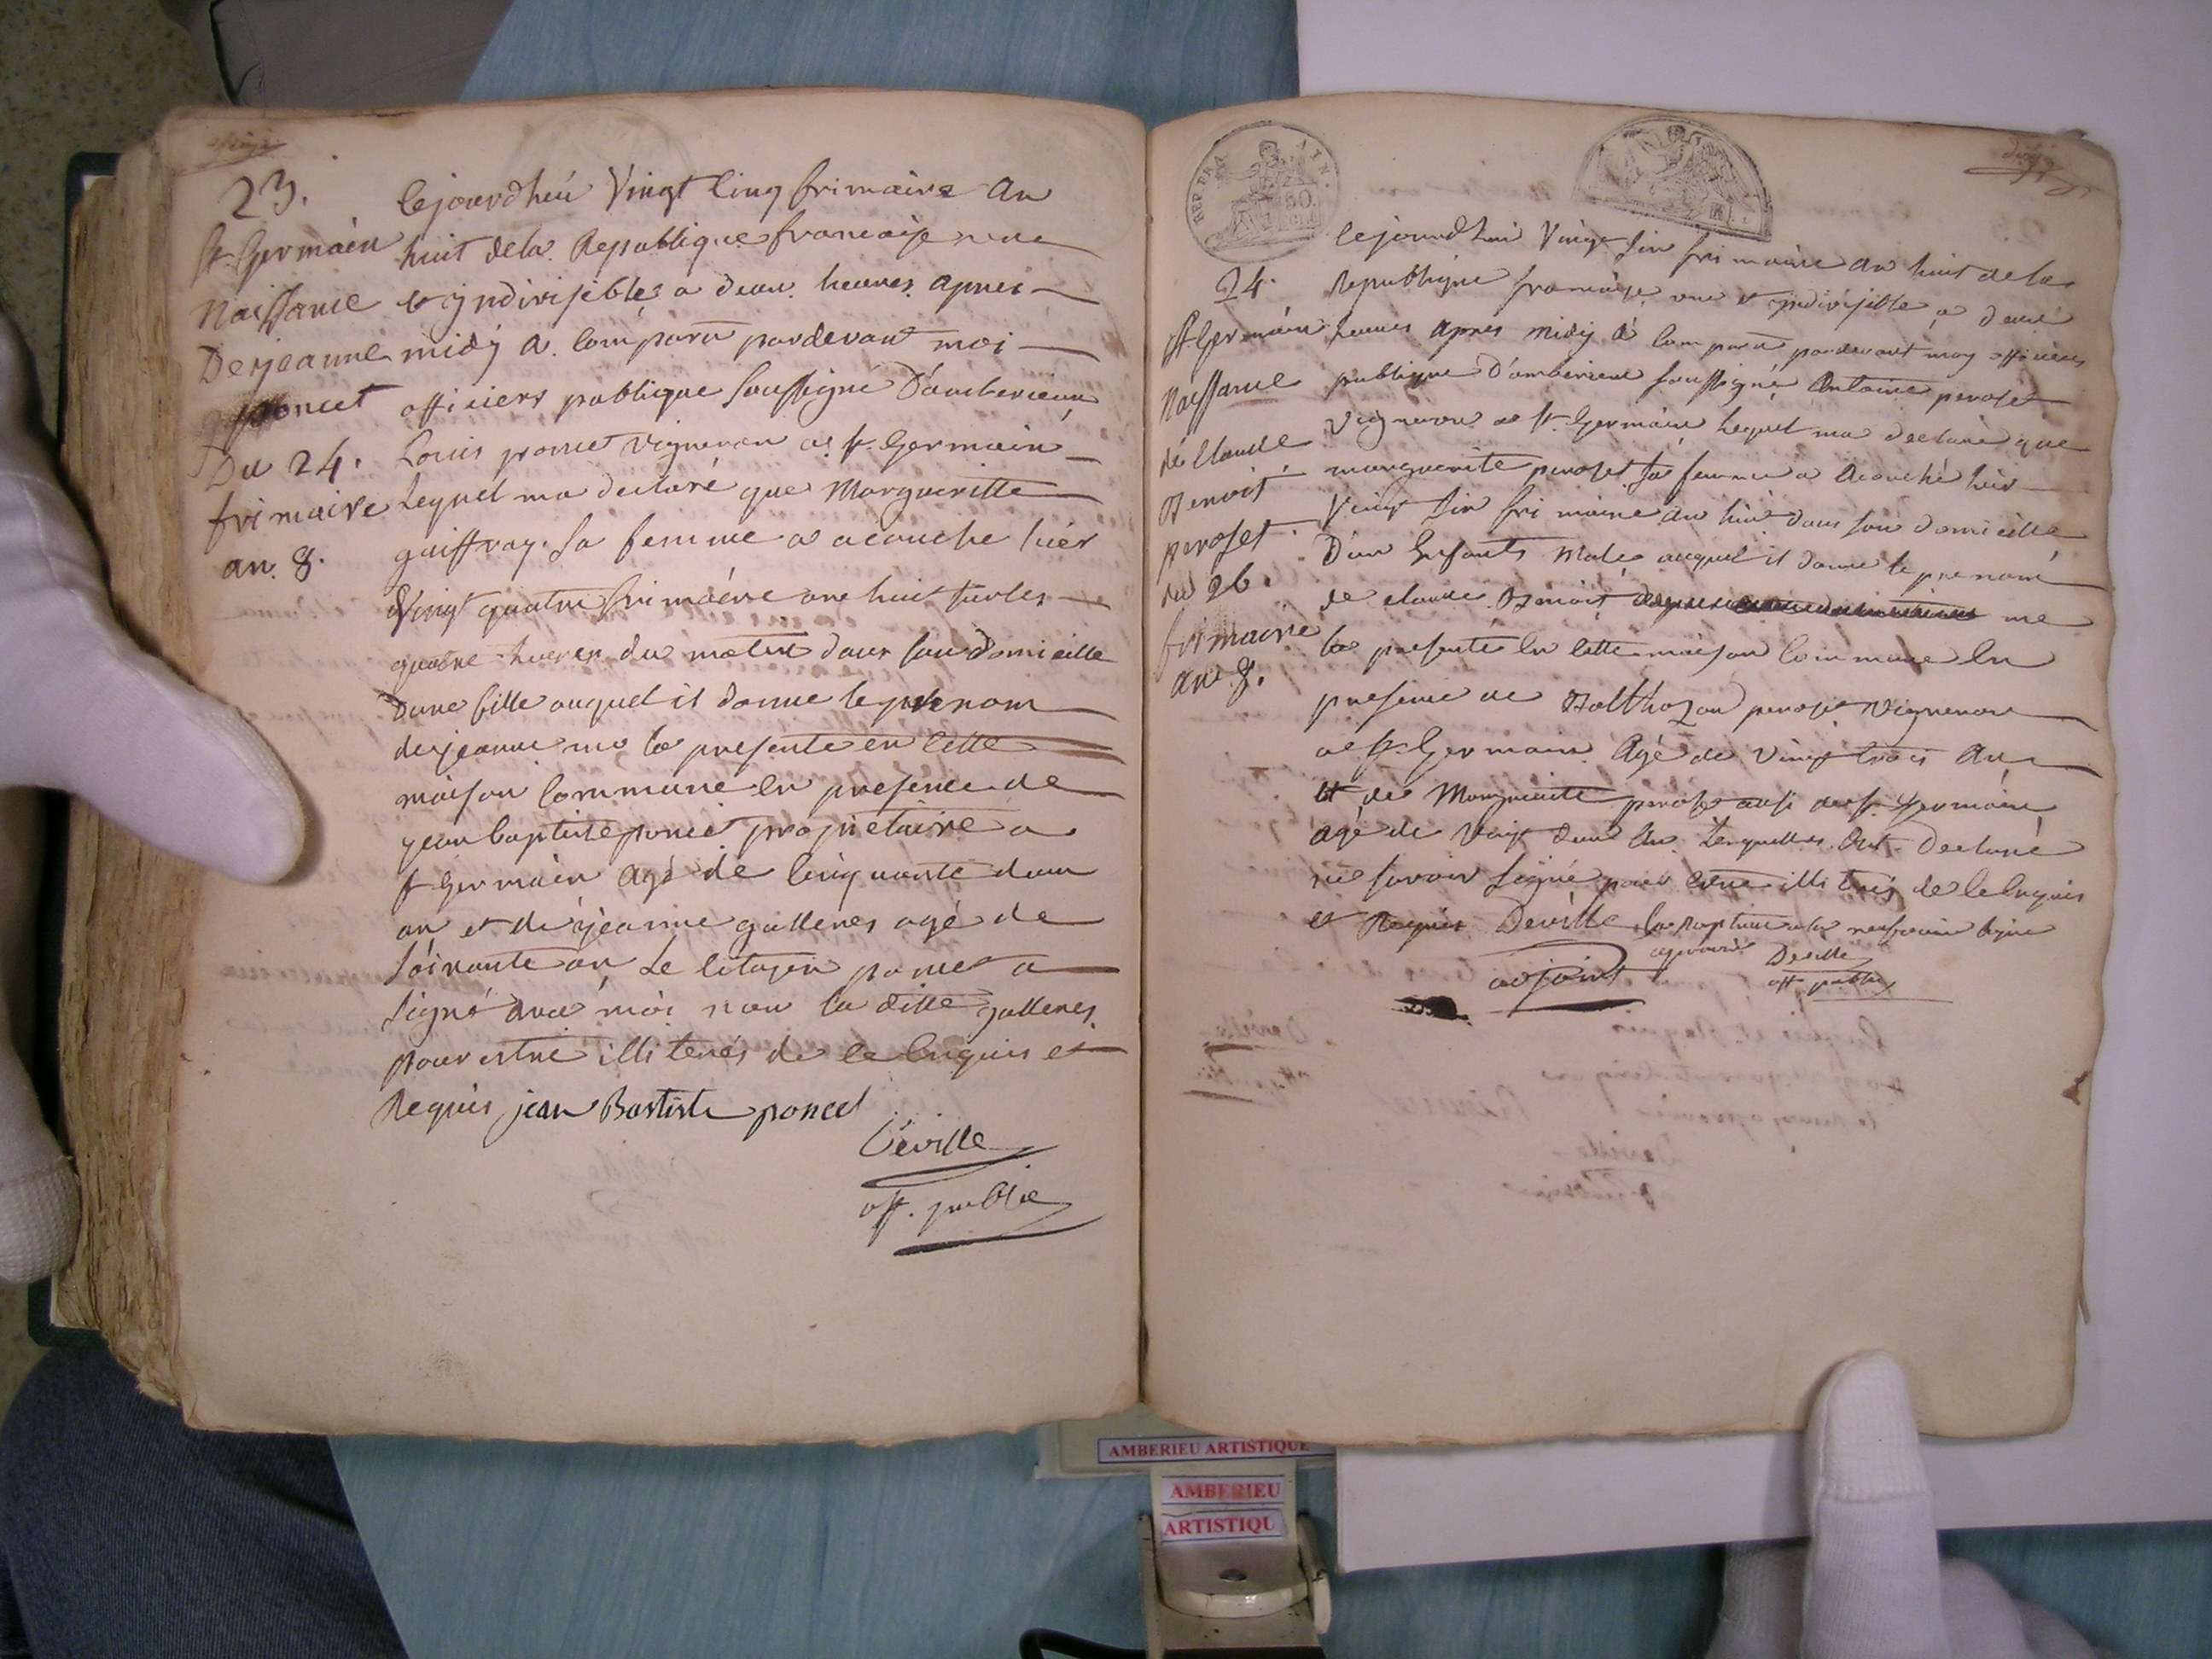 23.
St Germain
Naissance
Dejeanne
poncet
Du 24.
frimaire
an. 8.
Cejourdhui Vingt Cinq frimaire an
huit dela Republique francaise une
et yndivisible a deux heures apres
midy a comparu pardevant moi
officiers publique soussigné D'ambérieux
Louis poncet vigneron a St Germain
Lequel ma declaré que Margueritte
guiffray sa femme a acouche hier
Vingt quatre frimaire an huit sur les
quatre heures du matin dans son domicille
Dune fille auquel il donne le prenom
dejeanne ma la presente en cette
maison Commune En presence de
jean baptiste poncet propriétaire a
St Germain agé de Cinquante deux
an et de jeanne gallenes agé de
soixante an Le Citoyen poncet a
signé avec moi non la ditte gallenes
pour estre illiterés de ce Enquis et
Requis jean Bastiste poncet
Déville
off. public
REP. FRA
24.
St Germain
Naissance
de Claude
Benoit
peroset
du 26.
frimaire
an 8.
Cejourdhui Vingt six frimaire an huit de la
Republique francaise une et yndivisible a deux
heures apres midy à comparu pardevant moy officiers
publique D'amberieux soussigné Antoine peroset
Vigneron a St Germain lequel ma declaré que
marguerite peroset sa femme a acouché hier
Vingt six frimaire an huit dans son domicille
D'un Enfants male auquel il donne le prenom
de claude Benoit me
la presente En cette maison Commune En
presence de Balthazard peroset vigneron
a St Germain agé de Vingt trois an
et de Marguerite peroset aussi de St Germain
agé de Vingt deux An Lesquelles ont Declaré
ne savoir signé pour estre illiterés de ce Enquis
et Requis Deville
adjoint
approuvé Deville
off public
AMBERIEU ARTISTIQUE
AMBERIEU
ARTISTIQU